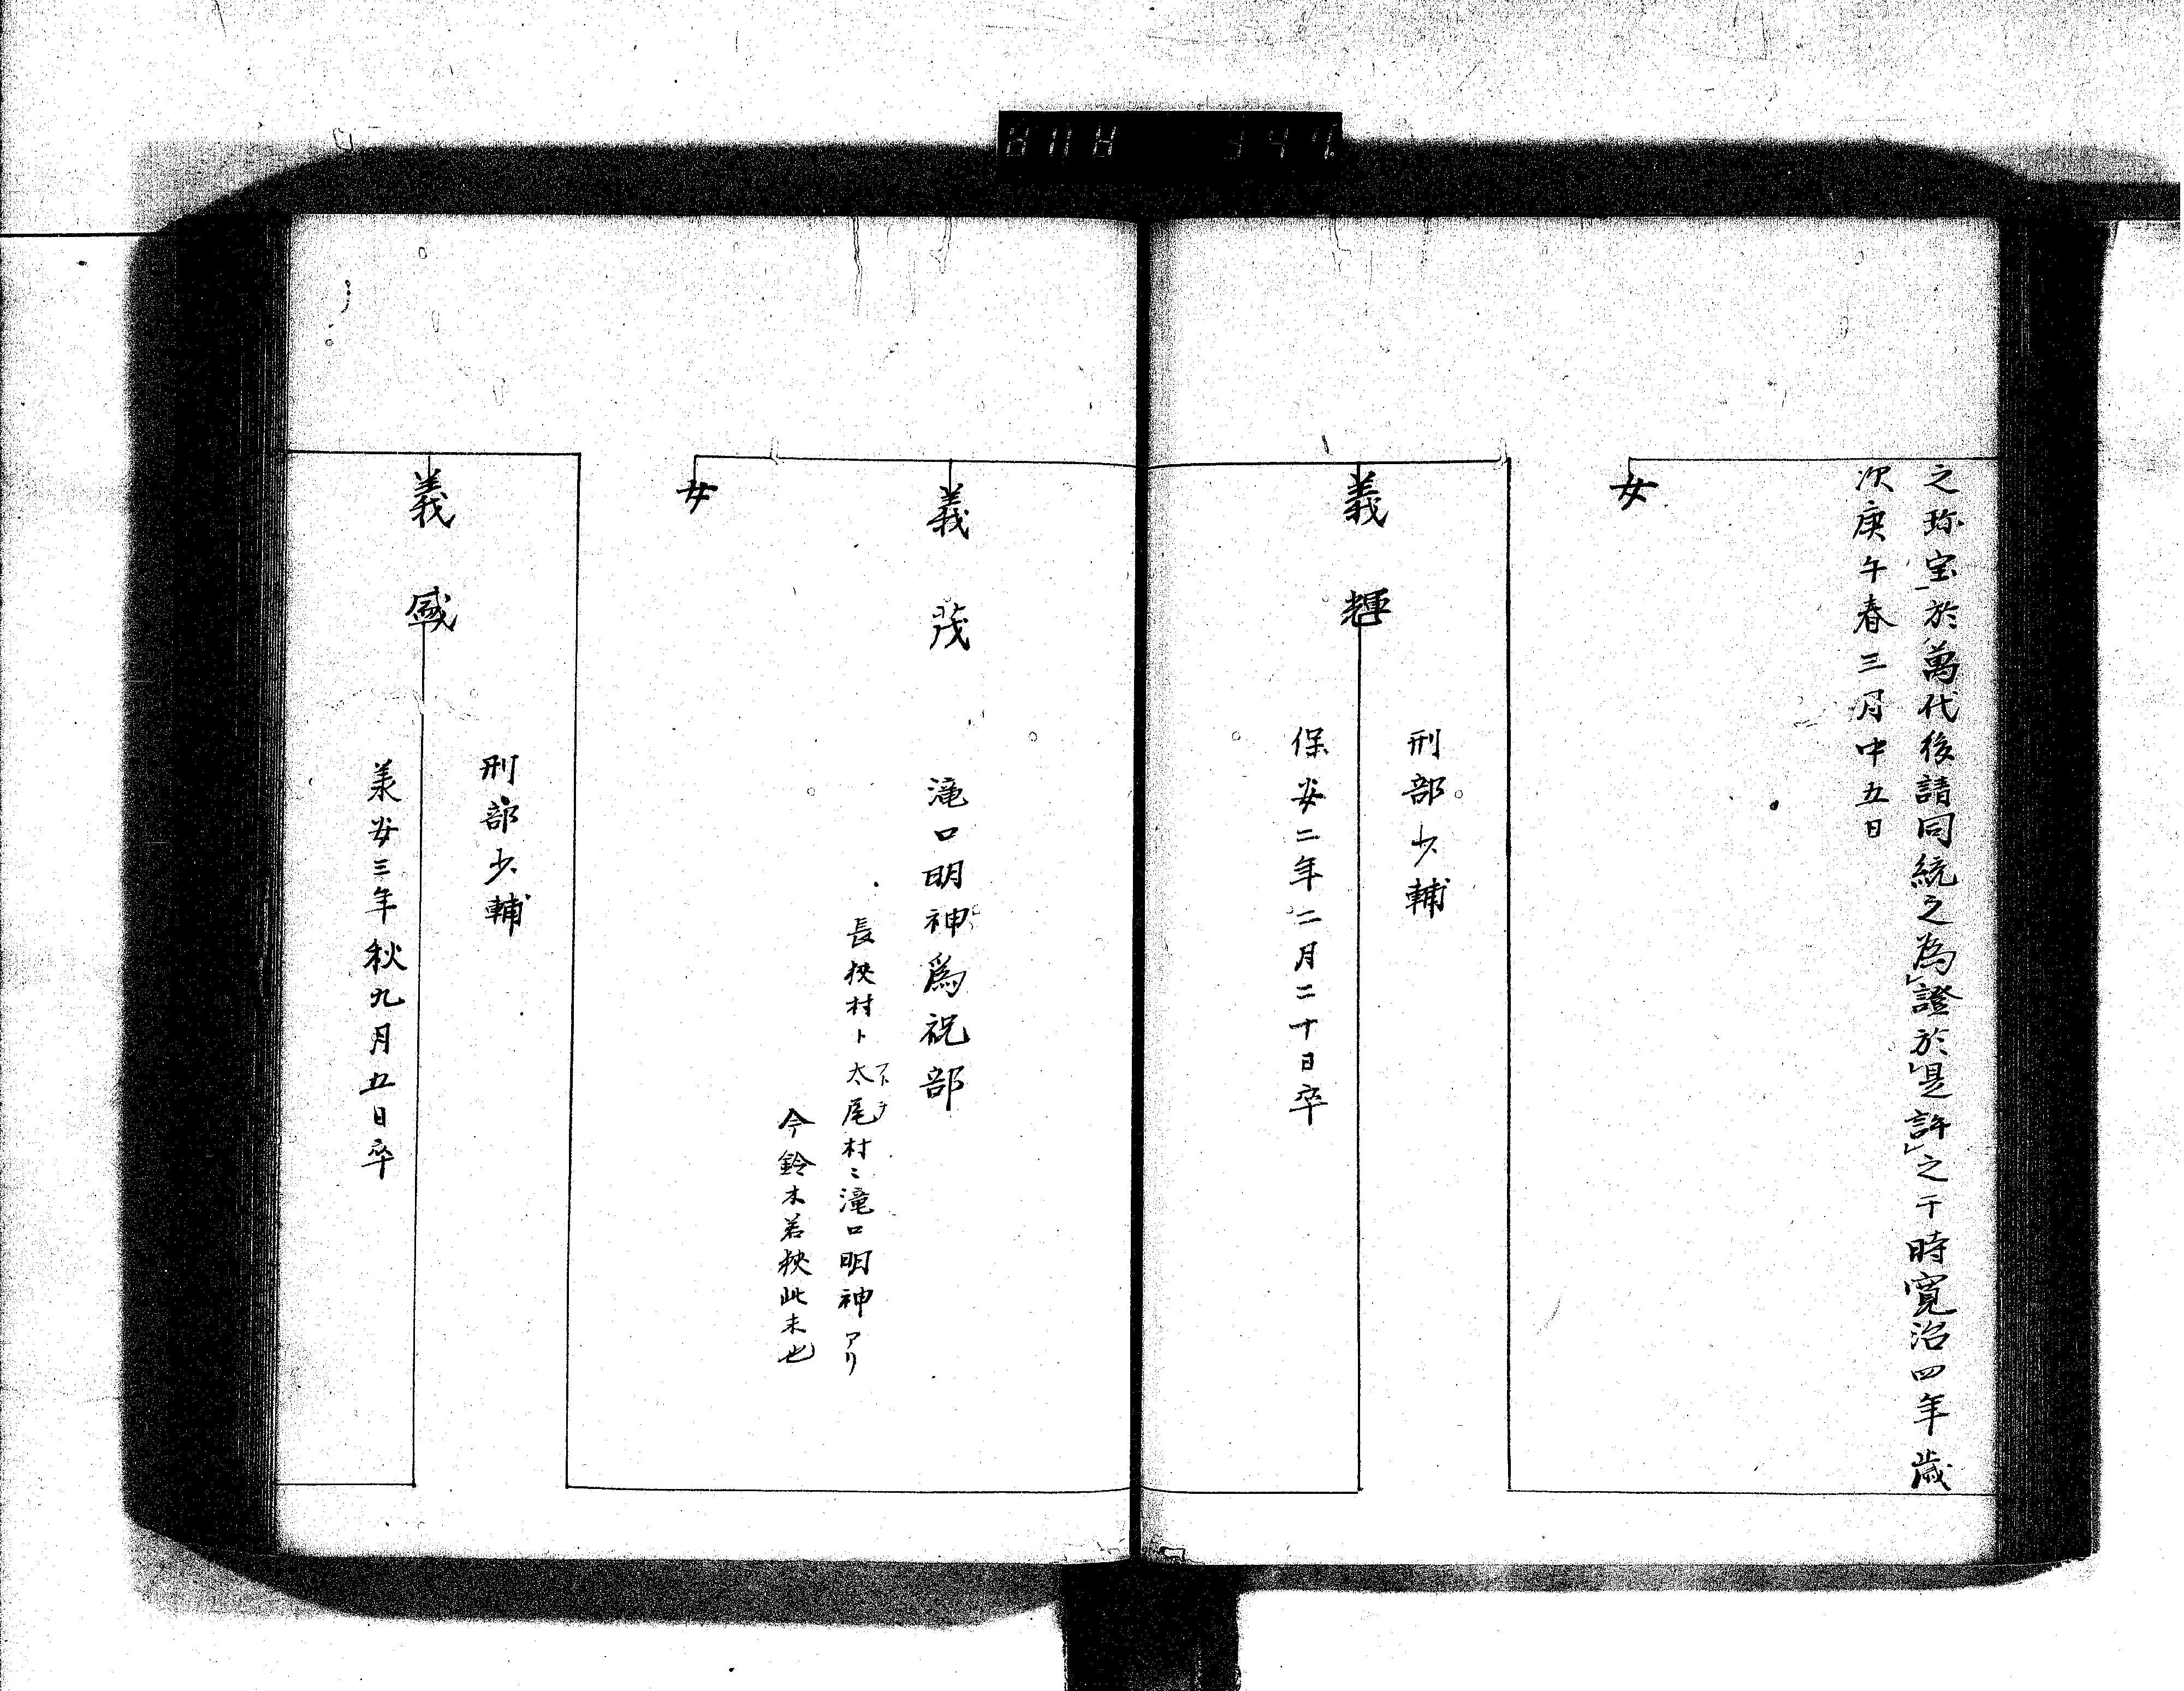 之珎宝於萬代後請同統之為證於是許之于時寛治四年歳
次庚午春三月中五日
女
義輝
刑部少輔
保安二年二月二十日卒
義茂
滝口明神爲祝部
長狹村ト太尾村ニ滝口明神アリ
今鈴木若狹此末也
女
義盛
刑部少輔
美安三年秋九月五日卒